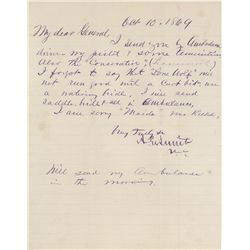 Oct 10. 1869
My dear General,
I send you by Ambulance
driver my pistol & some ammunition
Also the "Conservator"
I forgot to say that "Lone Wolf" will
not run good with a curb bit, use
a watering bridle. I will send
saddle, bridle &c in Ambulance.
I am sorry "Maida" was killed.
Very truly &c
Will send my Ambulance
in the morning.